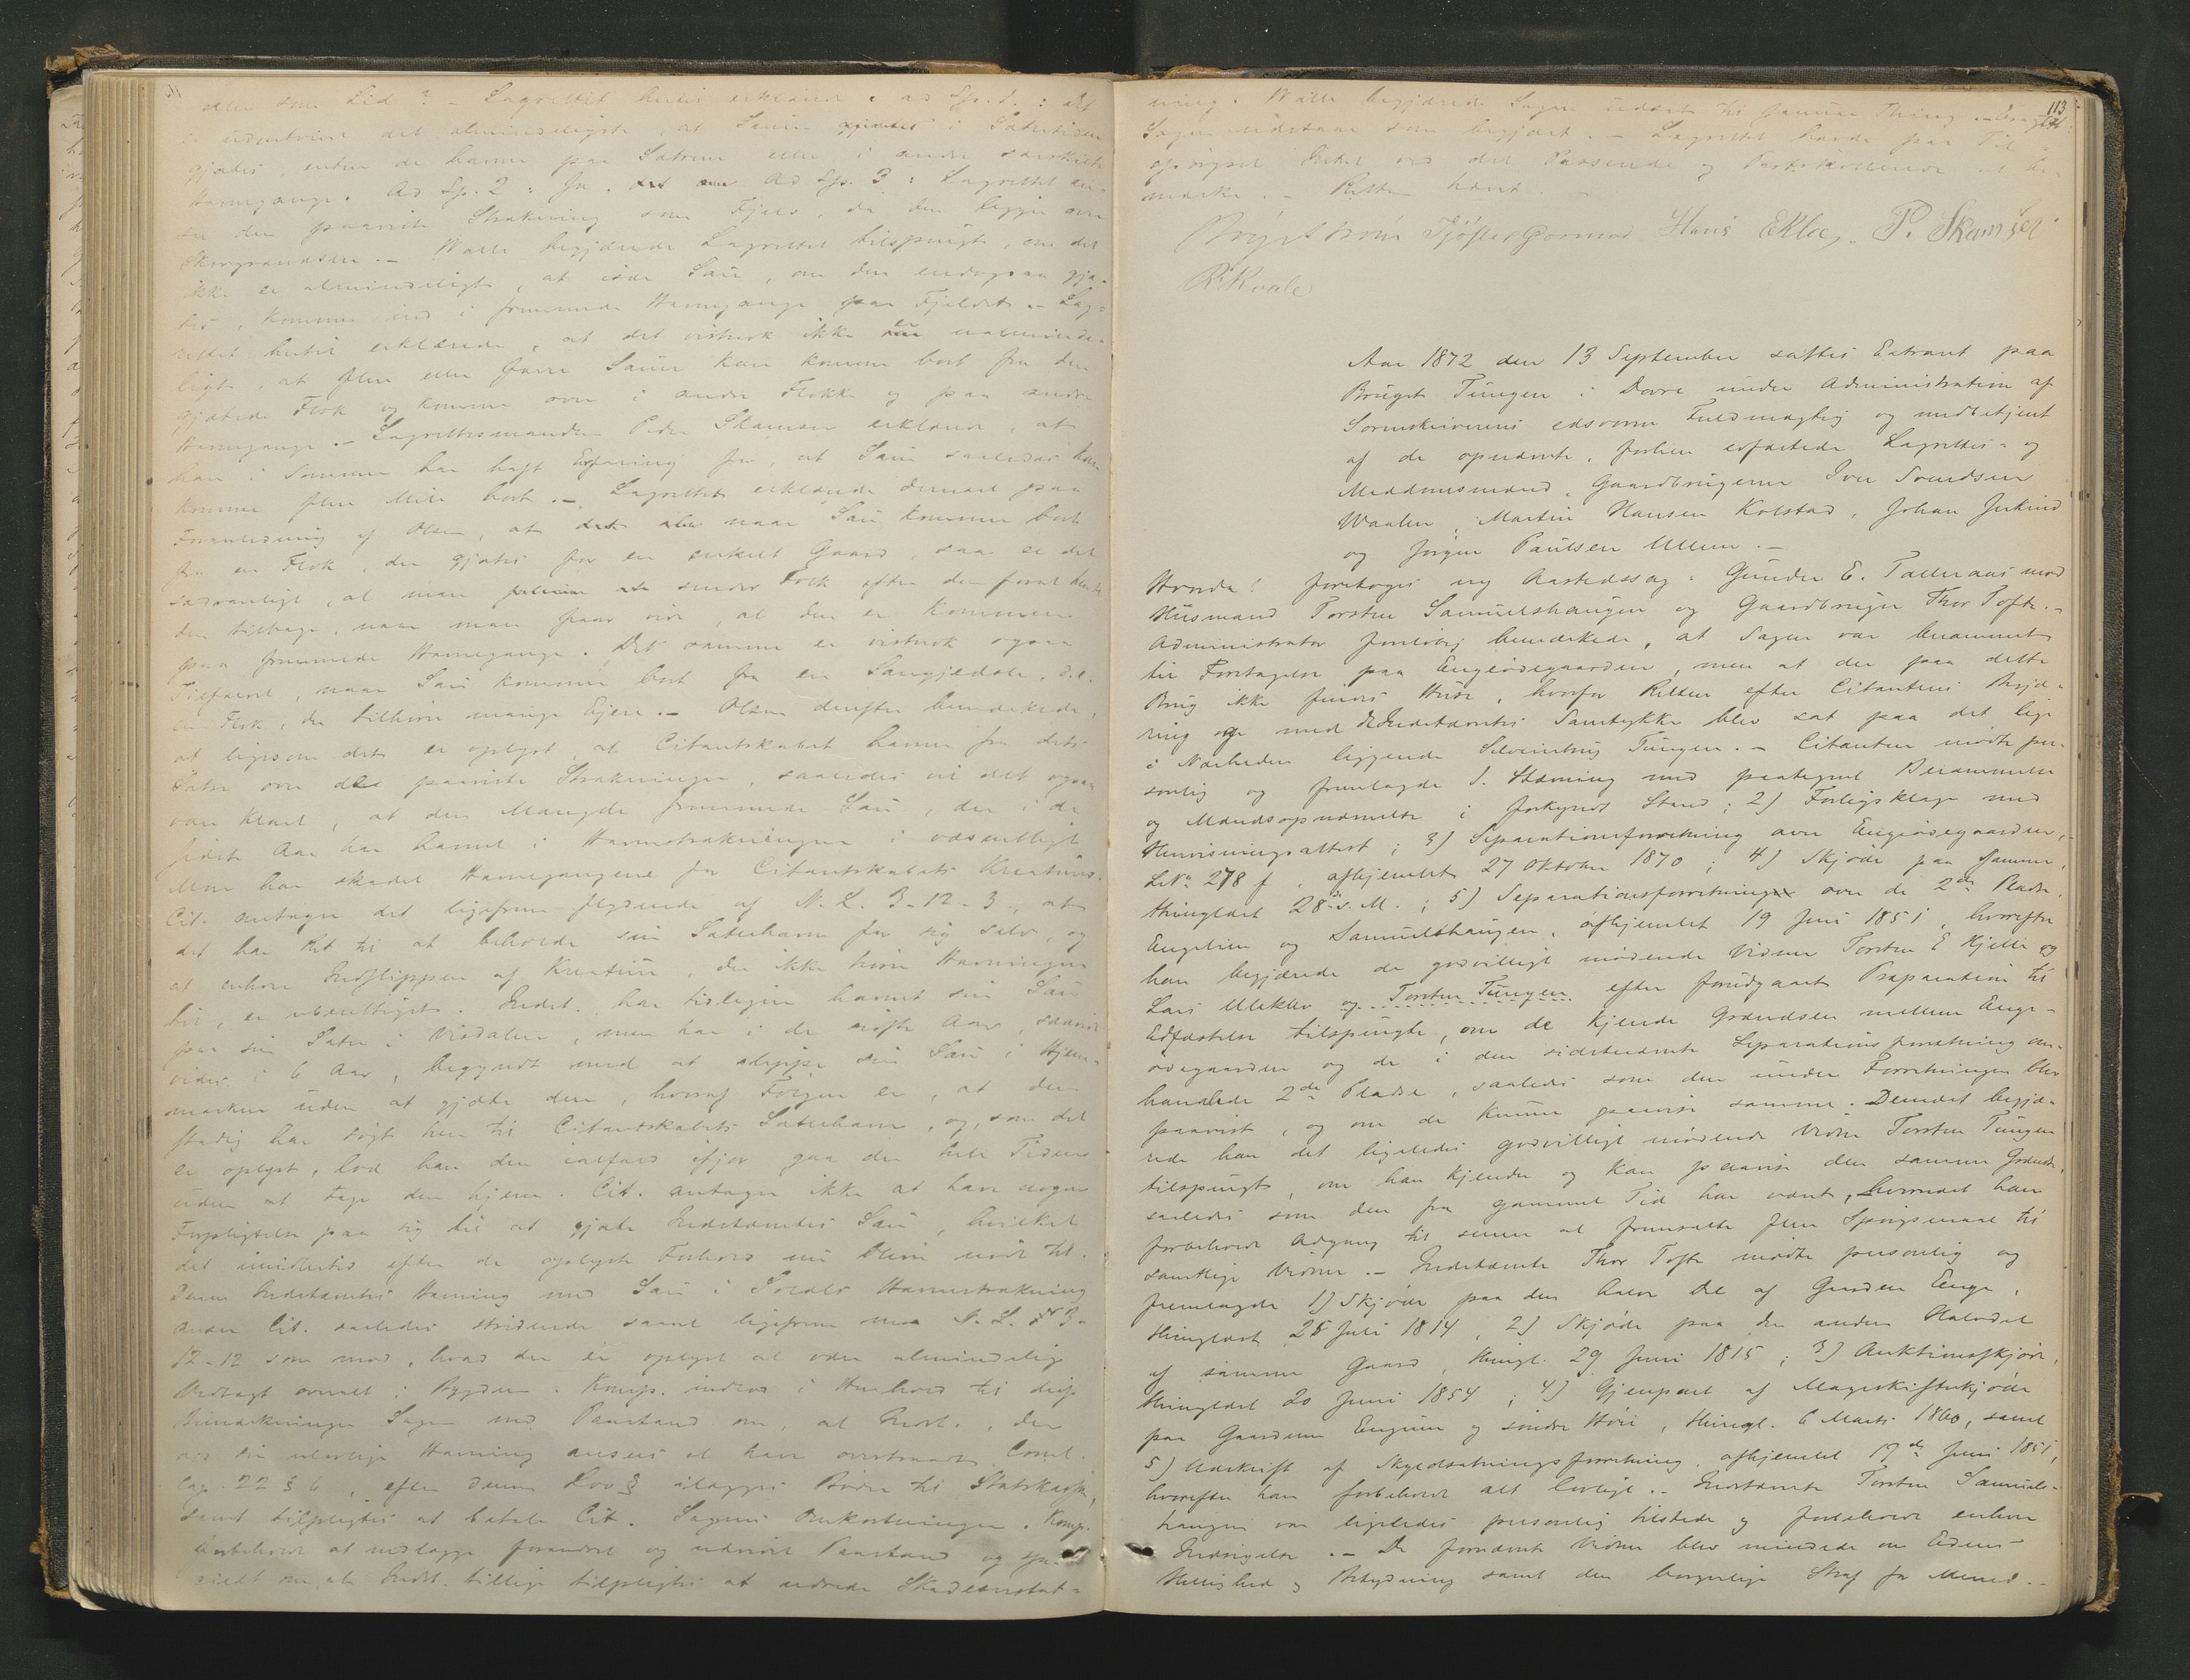 eller som Led? - Lagrettet hertil erklærede: ad Sp. 1: det
er udentvivl det almindeligste, at Sauen gjætes i Sætertiden
gjætes, enten de havne paa Sætrene eller i andre særskilte
Havnegange. Ad Sp. 2: Ja. Ad Sp. 3: Lagrettet an-
ser den paaviste Strækning som Fjeld, da den ligger over
Skovgrændsen. - Walle begjærede Lagrettet tilspurgt, om det
ikke er almindeligt, at især Sau, om den endogsaa gjæ-
tes, kommer ind i fremmede Havnegange paa Fjeldet. - Lag-
rettet hertil erklærede, at det vistnok ikke er ualminde-
ligt, at flere eller færre Sauer kan komme bort fra den
gjætede Flok og komme over i andre Flokke og paa andre
Havnegange. - Lagrettesmanden Peder Skamsar erklærede, at
han i Sommer har haft Erfaring for, at Sau saaledes kan
komme flere Mile bort. - Lagrettet erklærede dernæst paa
Foranledning af Olsen, at naar Sau kommer bort
fra en Flok, der gjætes for en enkelt Gaard, saa er det
sædvanligt, at man sender Folk efter den forat hente
den tilbage, naar man faar vide, at den er kommen
paa fremmede Havnegange. Det samme er vistnok ogsaa
Tilfældet, naar Sau kommer bort fra en Saugjedsle, d.e.
en Flok, der tilhører mange Ejere. - Olsen derefter bemærkede,
at ligesom det er oplyst, at Citantskabet havner fra dets
Sæter over de paaviste Strækninger, saaledes vil det ogsaa
være klart, at den Mængde fremmede Sau, der i de
sidste Aar har havnet i Havnestrækningen i væsentligt
Mon har skadet Havnegangene for Citantskabets Kreaturer.
Cit. antager det ligefrem flydende af N. L. 3-12-3, at
det har Ret til at beholde sin Sæterhavn for sig selv, og
at enhver Indslippen af Kreaturer, der ikke hører Havningen
til, er uberettiget. Indst. har tidligere havnet sin Sau
paa sin Sæter i Visdalen, men har i de sidste Aar, saavidt
vides i 6 Aar, begyndt med at slippe sin Sau i Hjem-
marken uden at gjæte den, hvoraf Følgen er, at den
stadig har søgt hen til Citantskabets Sæterhavn, og, som det
er oplyst, lod han den ialfald ifjor gaa der hele Tiden
uden at tage den hjem. Cit. antager ikke at have nogen
Forpligtelse paa sig til at gjæte Indstævntes Sau, hvilket
det imidlertid efter de oplyste Forhold nu bliver nødt til.
Denne Indstævntes Havning med Sau i Havnestrækning
anser Cit. saaledes stridende saavel ligefrem mod N. L. 3-
12-12 som mod, hvad der er oplyst at være almindelig
Vedtægt overalt i Bygden. Komp. indlod i Henhold til disse
Bemærkninger Sagen med Paastand om, at Indst., der
ved sin ulovlige Havning ansees at have overtraadt Criml.
Cap. 22 § 6, efter denne Lov § ilægges Bøder til Statskassen,
samt tilpligtes at betale Cit. Sagens Omkostninger. Komp.
forbeholdt at nedlægge forandret og udvidet Paastand og spe-
cielt om, at Indst. tillige tilpligtes at udrede Skadeserstat-
113
ning. Walle begjærede Sagen udsat til Januar Thing. -
Sagen udstaar som begjært. - Lagrettet havde paa Til-
spørgsel Intet ved det Passerede og Protokollerede at be-
mærke. - Retten hævet. -
Hans Ekloe P. Skamsar
R. Kvale
Aar 1872 den 13 September sattes Extraret paa
Bruget Tungen i Dovre under Administration af
Sorenskriverens edsvorne Fuldmægtig og medbetjent
af de opnævnte, forhen edfæstede Lagrettes- og
Meddomsmænd, Gaardbrugerne Iver Svendsen
Waalen, Martin Hansen Kolstad, Johan
og Jørgen Paulsen Ullern. -
Hvorda! foretoges ny Aastedssag: Gunder E. Talleraas mod
Husmand Torsten Samuelshaugen og Gaardbruger Thor Tofte. -
Administrator foreløbig bemærkede, at Sagen var berammet
til Foretagelse paa Engeødegaarden, men at der paa dette
Brug ikke findes Huse, hvorfor Retten efter Citantens Begjæ-
ring og med Indstævntes Samtykke blev sat paa det lige
i Nærheden liggende Selveierbrug Tungen. - Citanten mødte per-
sonlig og fremlagde 1. Stævning med paategnet Berammelse
og Mandsopnævnelse i forkyndt Stand; 2) Forligsklage med
Henvisningsattest; 3) Separationsforretning over Engeødegaarden,
LNo 278 f, afhjemlet 27 Oktober 1870; 4) Skjøde paa samme,
thinglæst 28 s. M.; 5) Separationsforretning over de 2de Pladse
Engelien og Samuelshaugen, afhjemlet 19 Juni 1851, hvorefter
han begjærede de godvilligt mødende Vidner Torsten E Hjelle og
Lars Uleklev og Torsten Tungen efter forudgaaet Præparation til
Edfæstelse tilspurgte, om de kjende Grændsen mellem Enge-
ødegaarden og de i den sidstnævnte Separationsforretning om-
handlede 2de Pladse, saaledes som den under Forretningen blev
paavist, og om de kunne paavise samme. Dernæst begjæ-
rede han det ligeledes godvilligt mødende Vidne Torsten Tungen
tilspurgt, om han kjender og kan paavise den samme Grændse,
saaledes som den fra gammel Tid har været, hvornæst han
forbeholdt Adgang til senere at fremsætte flere Spørgsmaal til
samtlige Vidner. - Indstævnte Thor Tofte mødte personlig og
fremlagde 1) Skjøde paa den halve Del af Gaarden Enge,
thinglæst 25 Juli 1814, 2) Skjøde paa den anden Halvdel
af samme Gaard, thingl. 29 Juni 1815; 3) Auktionsskjøde,
thinglæst 20 Juni 1854; 4) Gjenpart af Mageskifteskjøde
paa Gaardene Engum og søndre Høie, thingl. 6 Marts 1860, samt
5) Udskrift af Skyldsætningsforretning, afhjemlet 19de Juni 1851,
hvorefter han forbeholdt alt lovligt. - Indstævnte Torsten Samuels-
haugen var ligeledes personlig tilstede og forbeholdt enhver
Indsigelse. - De fornævnte Vidner blev mindede om Edens
Hellighed og Betydning samt den borgerlige Straf for Mened. -